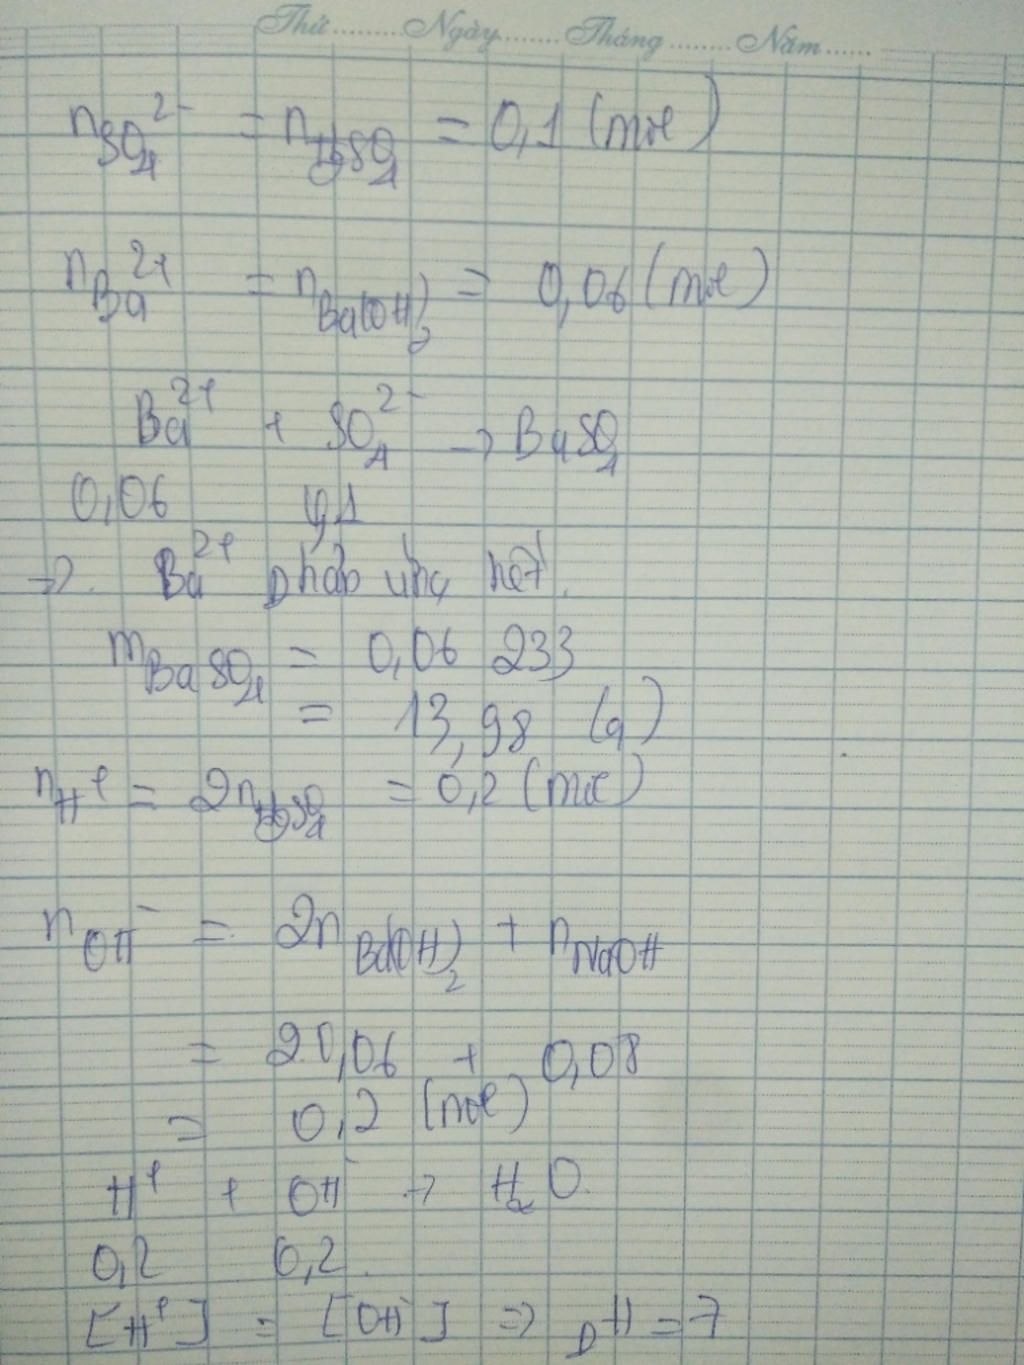 Thứ.........Ngày........Tháng........Năm......
nSO₄²⁻ = nH₂SO₄ = 0,1 (mol)
nBa²⁺ = nBa(OH)₂ = 0,06 (mol)
Ba²⁺ + SO₄²⁻ → BaSO₄
0,06 0,1
→ Ba²⁺ phản ứng hết.
mBaSO₄ = 0,06 233
= 13,98 (g)
nH⁺ = 2nH₂SO₄ = 0,2 (mol)
nOH⁻ = 2nBa(OH)₂ + nNaOH
= 2.0,06 + 0,08
= 0,2 (mol)
H⁺ + OH⁻ → H₂O
0,2 0,2
[H⁺] = [OH⁻] ⇒ pH = 7